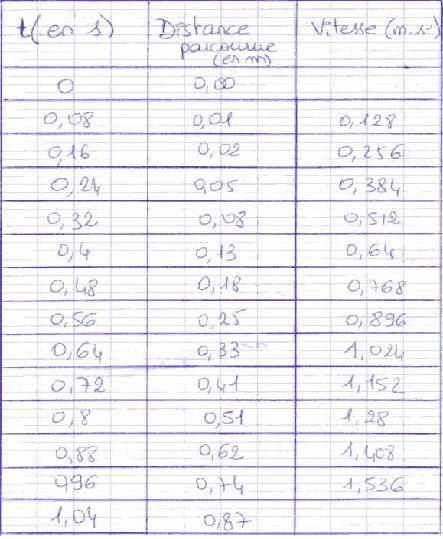 t (en s) Distance parcourue (en m) Vitesse (m.s-
0 0,00
0,08 0,01 0,128
0,16 0,02 0,256
0,24 0,05 0,384
0,32 0,08 0,512
0,4 0,13 0,64
0,48 0,18 0,768
0,56 0,25 0,896
0,64 0,33 1,024
0,72 0,41 1,152
0,8 0,51 1,28
0,88 0,62 1,408
0,96 0,74 1,536
1,04 0,87